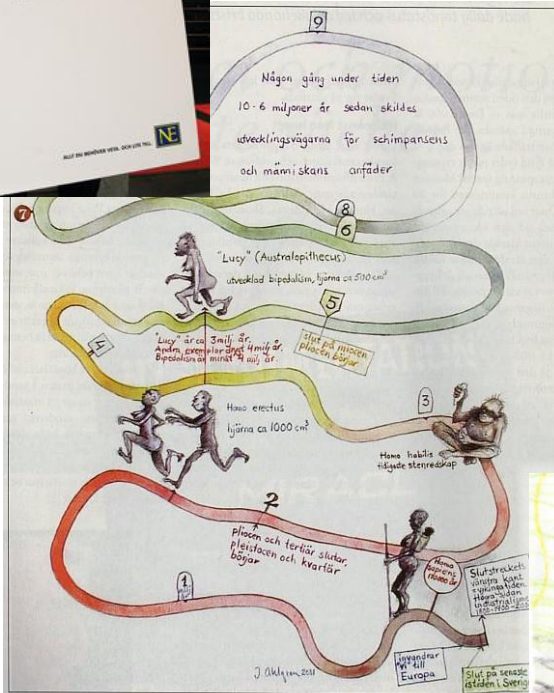 ALLT DU BEHÖVER VETA. OCH LITE TILL.
NE
9
Någon gång under tiden
10-6 miljoner år sedan skildes
utvecklingsvägarna för schimpansens
och människans anfäder
7
8
6
"Lucy" (Australopithecus)
utvecklad bipedalism, hjärna ca 500 cm³
5
slut på miocen
pliocen börjar
4
"Lucy" är ca 3 milj. år.
Andra exemplar drygt 4 milj år.
Bipedalism är minst 4 milj. år
3
Homo erectus
hjärna ca 1000 cm³
Homo habilis
tidigaste stenredskap
2
pliocen och tertiär slutar,
pleistocen och kvartär
börjar
1
Homo
sapiens
Slutstreckets
vänstra kant
= vikingatiden
Högra sidan
industrialismen
invandrar
"vi" till
Europa
Slut på senaste
istiden i Sverige
J. Ahlgren